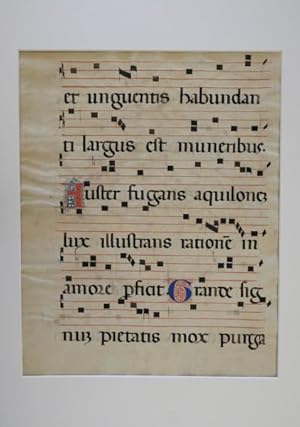 et unguentis habundan
ti largus est muneribus.
Auster fugans aquilonez
lux illustrans ratione in
amore pficit Grande sig
nuz pietatis mox purga